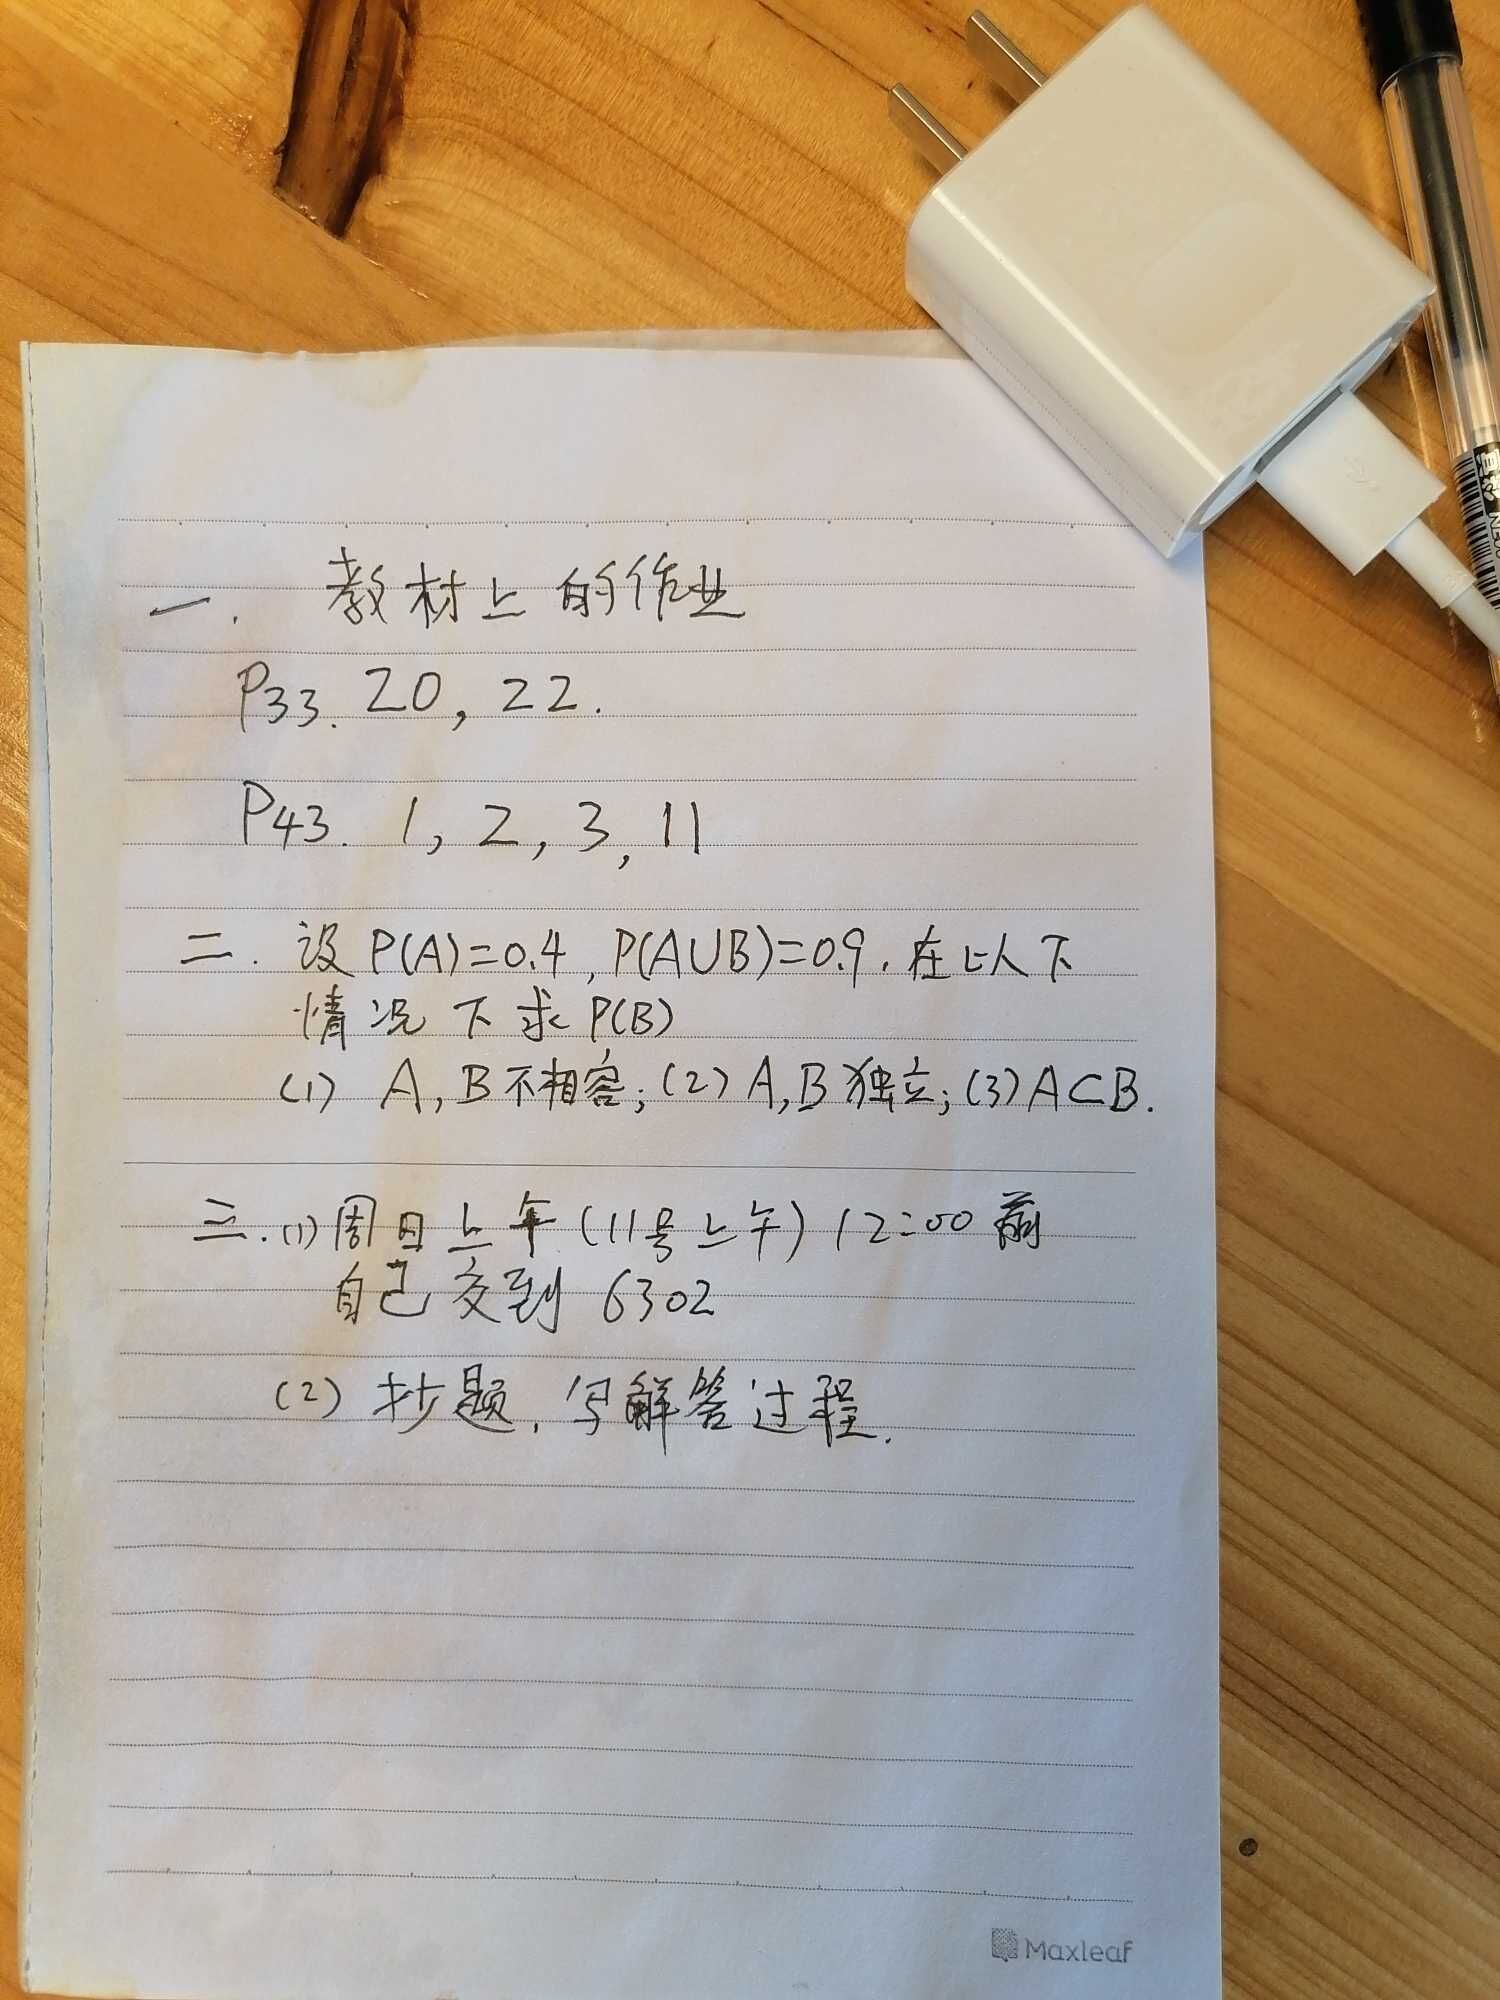 一. 教材上的作业
P33. 20, 22.
P43. 1, 2, 3, 11
二. 设P(A)=0.4, P(A∪B)=0.9. 在以下
情况下求P(B)
(1) A, B不相容; (2) A, B独立; (3) A⊂B.
三. (1) 周日上午 (11号上午) 12:00前
自己交到 6302
(2) 抄题, 写解答过程.
Maxleaf